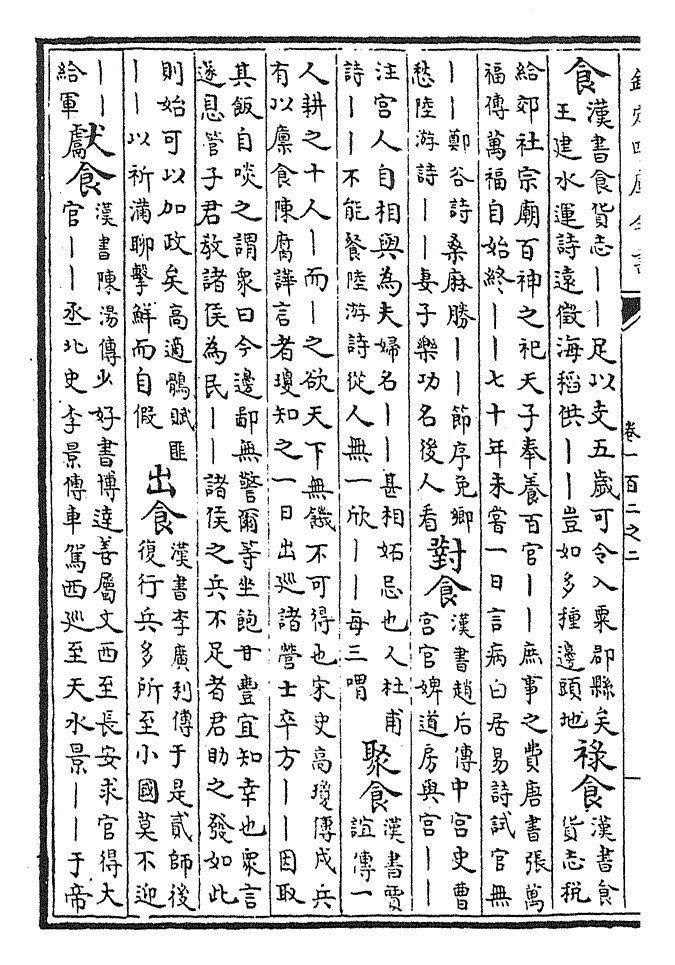 欽定四庫全書
卷一百二之二
食
漢書食貨志丨丨足以支五歲可令入粟郡縣矣
王建水運詩遠徵海稻供丨丨豈如多種邊頭地
祿食
漢書食
貨志税
給郊社宗廟百神之祀天子奉養百官丨丨庶事之費唐書張萬
福傳萬福自始終丨丨七十年未嘗一日言病白居易詩試官無
丨丨鄭谷詩桑麻勝丨丨節序免鄉
愁陸游詩丨丨妻子樂功名後人看
對食
漢書趙后傳中宫史曹
宫官婢道房與宫丨丨
注宫人自相與為夫婦名丨丨甚相妬忌也又杜甫
詩丨丨不能餐陸游詩從人無一欣丨丨每三喟
聚食
漢書賈
誼傳一
人耕之十人丨而丨之欲天下無饑不可得也宋史高瓊傳戍兵
有以廩食陳腐譁言者瓊知之一日出巡諸營士卒方丨丨因取
其飯自啖之謂衆曰今邊鄙無警爾等坐飽甘豐宜知幸也衆言
遂息管子君教諸侯為民丨丨諸侯之兵不足者君助之發如此
則始可以加政矣高適鶻賦匪
丨丨以祈滿聊擊鮮而自假
出食
漢書李廣利傳于是貳師後
復行兵多所至小國莫不迎
丨丨
給軍
獻食
漢書陳湯傳少好書博達善屬文西至長安求官得大
官丨丨丞北史李景傳車駕西巡至天水景丨丨于帝